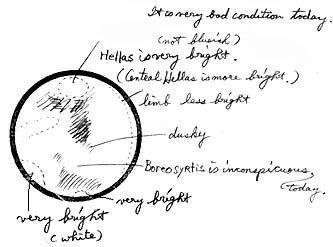 It is very bad condition today.
(not blueish)
Hellas is very bright.
(Central Hellas is more bright.)
limb less bright
dusky
Boreosyrtis is inconspicuous,
today.
very bright
very bright
(white)